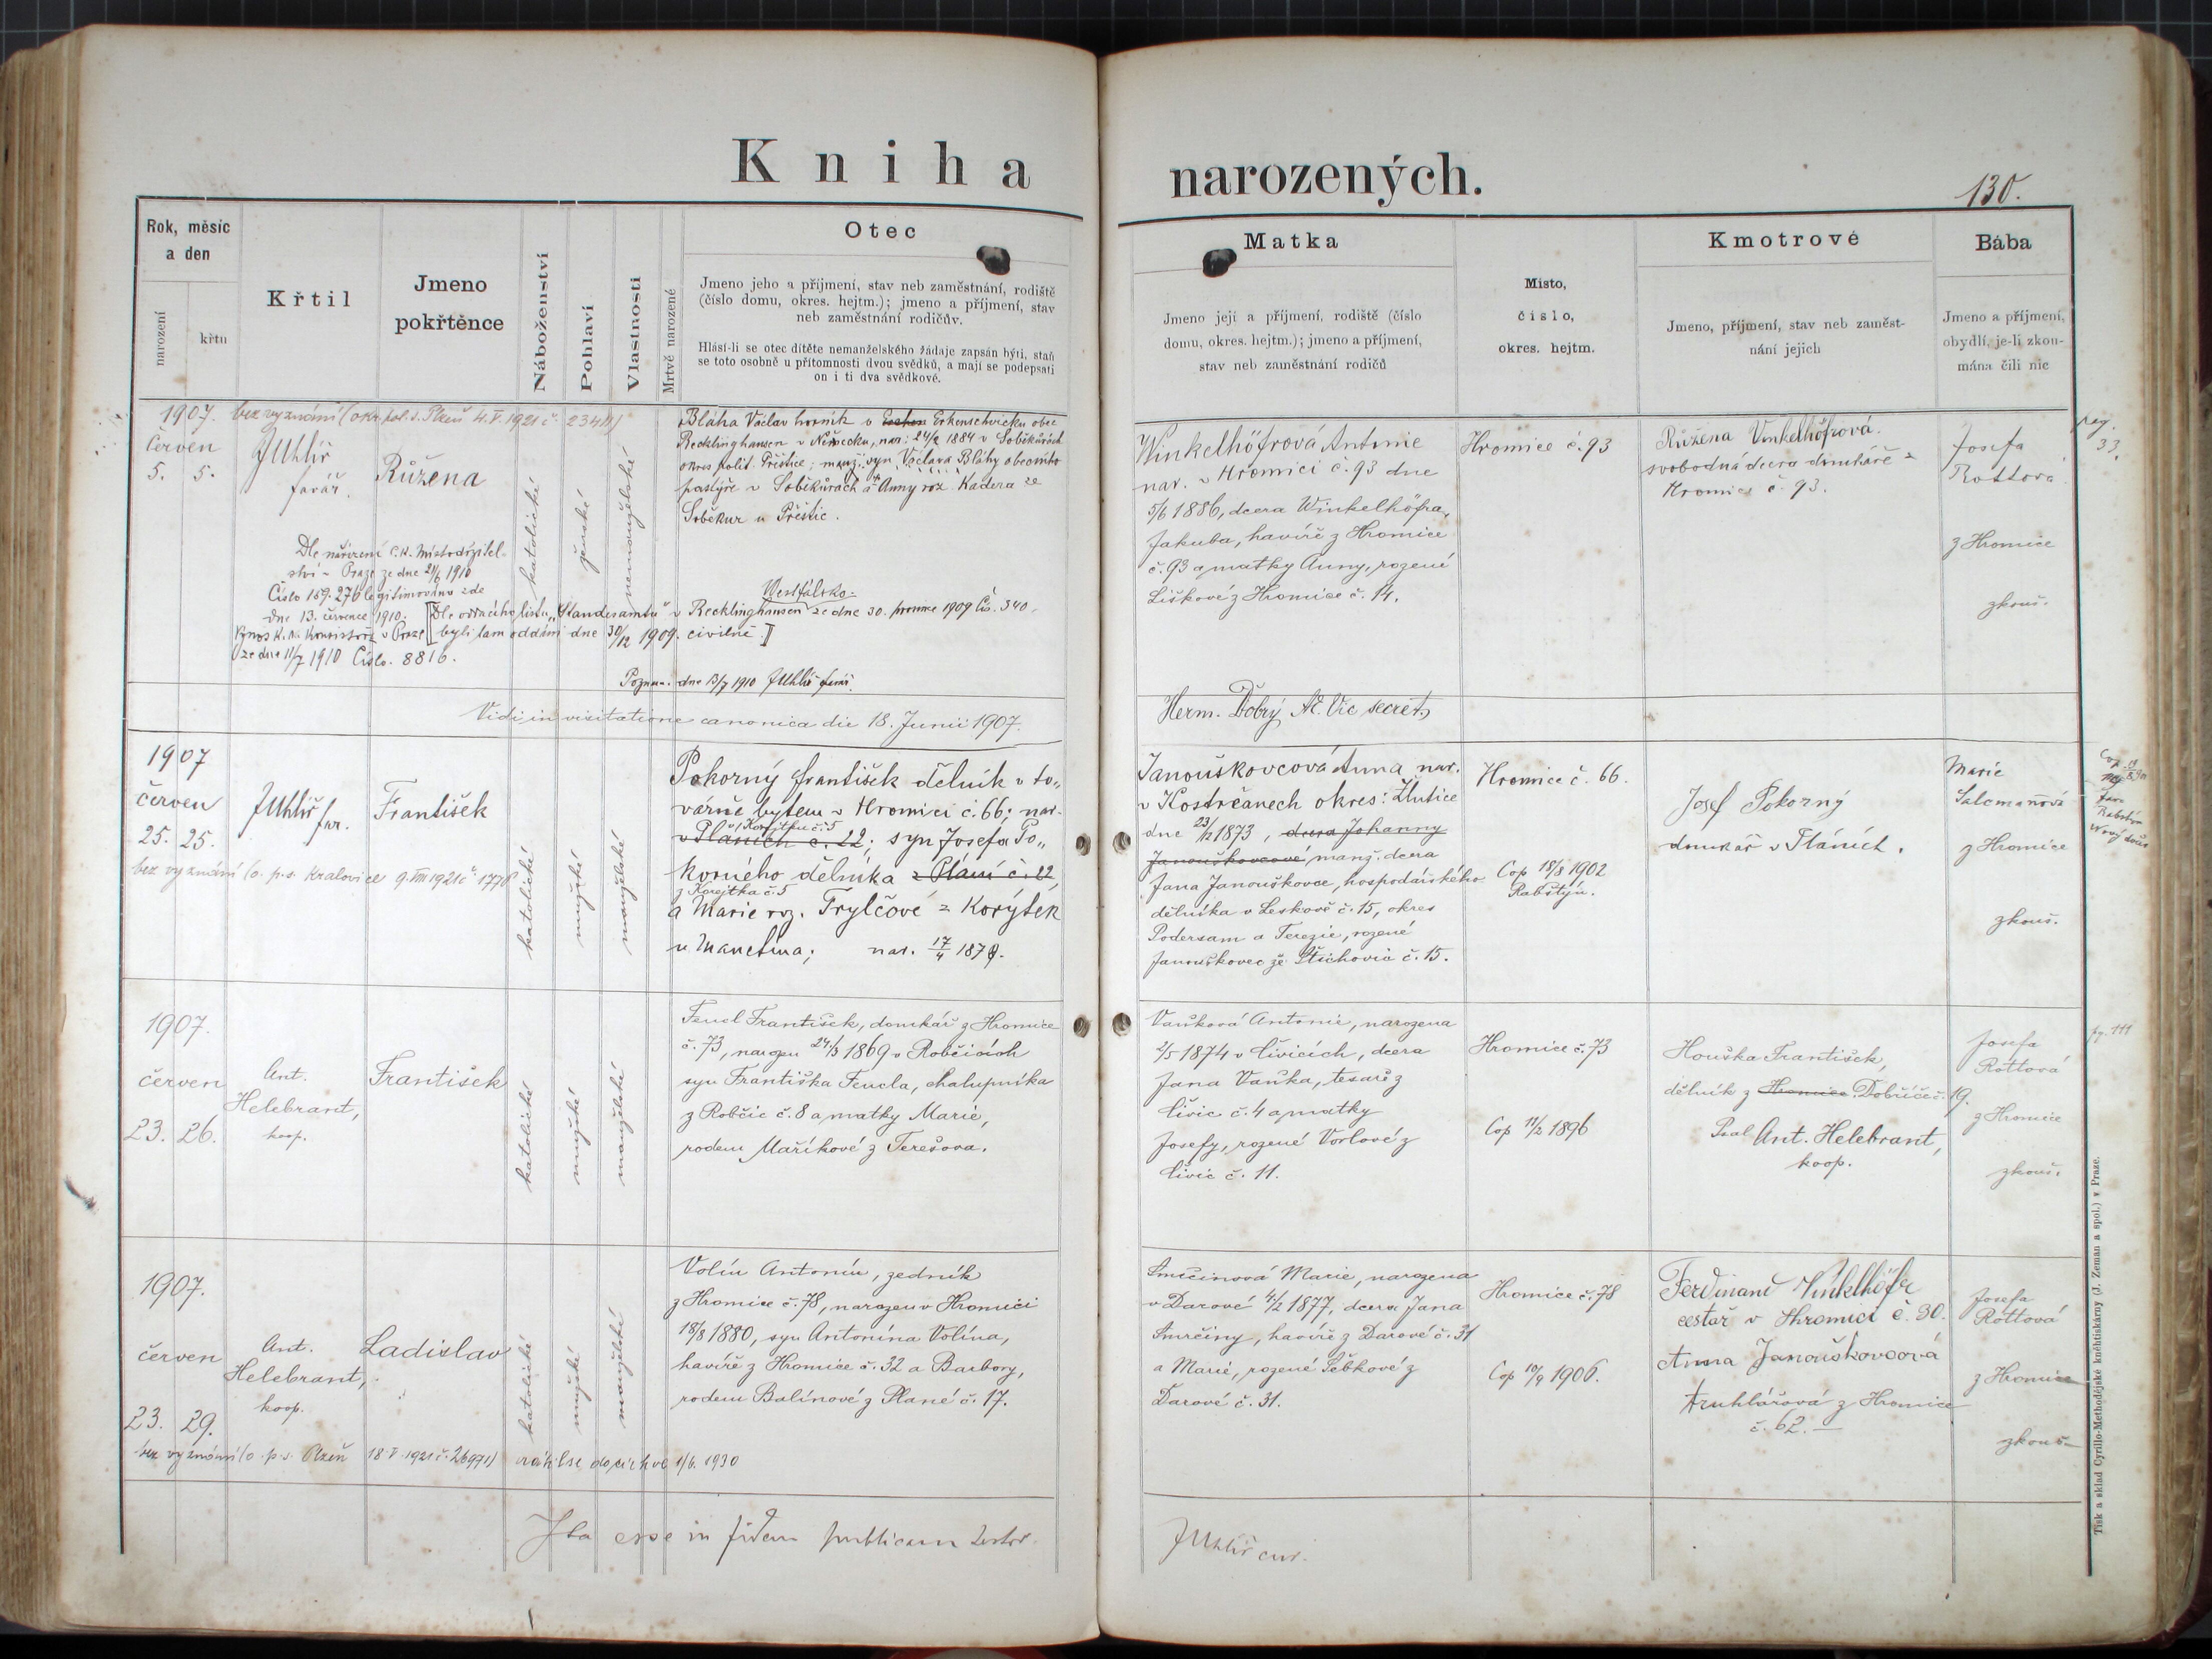 Kniha narozených.
130.
Rok, měsíc
a den
narození
křtu
Křtil
Jmeno
pokřtěnce
Náboženství
Pohlaví
Vlastnosti
Mrtvě narozené
Otec
Jmeno jeho a příjmení, stav neb zaměstnání, rodiště
(číslo domu, okres. hejtm.); jmeno a příjmení, stav
neb zaměstnání rodičův.
Hlásí-li se otec dítěte nemanželského žádaje zapsán býti, staň
se toto osobně u přítomnosti dvou svědků, a mají se podepsati
on i ti dva svědkové.
Matka
Jmeno její a příjmení, rodiště (číslo
domu, okres. hejtm.); jmeno a příjmení,
stav neb zaměstnání rodičů
Místo,
číslo,
okres. hejtm.
Kmotrové
Jmeno, příjmení, stav neb zaměst-
nání jejich
Bába
Jmeno a příjmení,
obydlí, je-li zkou-
mána čili nic
1907. bez vyznání (okr. pol. s. Plzeň 4.V.1921 č. 23411)
červen
5. 5.
JUhlíř
farář.
Růžena
katolické
ženské
nemanželské
Bláha Václav horník v Erkenschwicku obec
Recklinghausen v Německu, nar: 24/2 1884 v Soběkurách
okres polit. Přeštice; manž. syn Václava Bláhy obecního
pastýře v Soběkurách a Anny roz. Kadera ze
Soběkur u Přeštic.
Dle nařízení C.K. Místodržitel-
ství v Praze ze dne 21/6 1910
Číslo 159.276 legitimováno zde
dne 13. července 1910.
Výnos K. A. Konsistoře v Praze
ze dne 11/7 1910 Číslo. 8816.
Westfálsko.
[Dle oddacího listu „Standesamtu" v Recklinghausen ze dne 30. prosince 1909 Čís. 540
byli tam oddáni dne 30/12 1909. civilně.]
Poznam. dne 13/7 1910 JUhlíř farář.
Winkelhöfrová Antonie
nar. v Hromici č. 93 dne
5/6 1886, dcera Winkelhöfra,
Jakuba, havíře z Hromice
č. 93 a matky Anny, rozené
Liškové z Hromice č. 14.
Hromice č. 93
Růžena Vinkelhöfrová.
svobodná dcera domkáře z
Hromice č. 93.
Josefa
Rottová
z Hromice
zkouš.
pag.
33.
Vidi in visitatione canonica die 18. Junii 1907.
Herm. Dobrý AE. Vic secret.
1907
červen
25. 25.
bez vyznání (o. p. s. Kralovice 9.VIII 1921 č. 17708
JUhlíř far.
František
katolické
mužské
manželské
Pokorný František dělník v to„
várně bytem v Hromici č. 66; nar.
v Korejtku č. 5
v Pláních č. 22; syn Josefa Po„
korného dělníka z Plání č. 22
z Korejtka č. 5
a Marie roz. Trylčové z Korýtek
u Manětína; nar. 17/4 1878.
Janouškovcová Anna nar.
v Kostrčanech okres: Žlutice
dne 23/12 1873, dcera Johanny
Janouškovcové manž. dcera
Jana Janouškovce, hospodářského
dělníka v Leskově č. 15, okres
Podersam a Terezie, rozené
Janouškovec ze Štichovic č. 15.
Hromice č. 66.
Cop 18/8 1902
Rabštýn.
Josef Pokorný
domkář v Pláních.
Marie
Salcmanová
z Hromice
zkouš.
Rabštýn
Nový dvůr
1907.
červen
23. 26.
Ant.
Helebrant,
koop.
František
katolické
mužské
manželské
Fencl František, domkář z Hromice
č. 73, narozen 24/3 1869 v Robčicích
syn Františka Fencla, chalupníka
z Robčic č. 8 a matky Marie,
rodem Maříkové z Terešova.
Vaňková Antonie, narozena
2/5 1874 v Čivicích, dcera
Jana Vaňka, tesaře z
Čivic č. 4 a matky
Josefy, rozené Vorlové z
Čivic č. 11.
Hromice č. 73
Cop 11/2 1896
Houška František,
dělník z Hromice Dobříče č. 19.
Psal Ant. Helebrant,
koop.
Josefa
Rottová
z Hromice
zkouš.
pg. 111
1907.
červen
23. 29.
Ant.
Helebrant,
koop.
Ladislav
katolické
mužské
manželské
Volín Antonín, zedník
z Hromice č. 78, narozen v Hromici
18/8 1880, syn Antonína Volína,
havíře z Hromice č. 32 a Barbory,
rodem Balínové z Plané č. 17.
Smrčinová Marie, narozena
v Darové 4/2 1877, dcera Jana
Smrčiny, havíře z Darové č. 31
a Marie, rozené Šebkové z
Darové č. 31.
Hromice č. 78
Cop 10/9 1906.
Ferdinand Vinkelhöfr
cestář v Hromici č. 30.
Anna Janouškovcová
truhlářová z Hromice
č. 62.
Josefa
Rottová
z Hromice
zkouš.
bez vyznání (o. p. s. Plzeň 18.V.1921 č. 26971) vrátil se do církve 1/6. 1930
Ita esse in fidem publicam testor.
JUhlíř cur.
Tisk a sklad Cyrillo-Methodějské knihtiskárny (J. Zeman a spol.) v Praze.